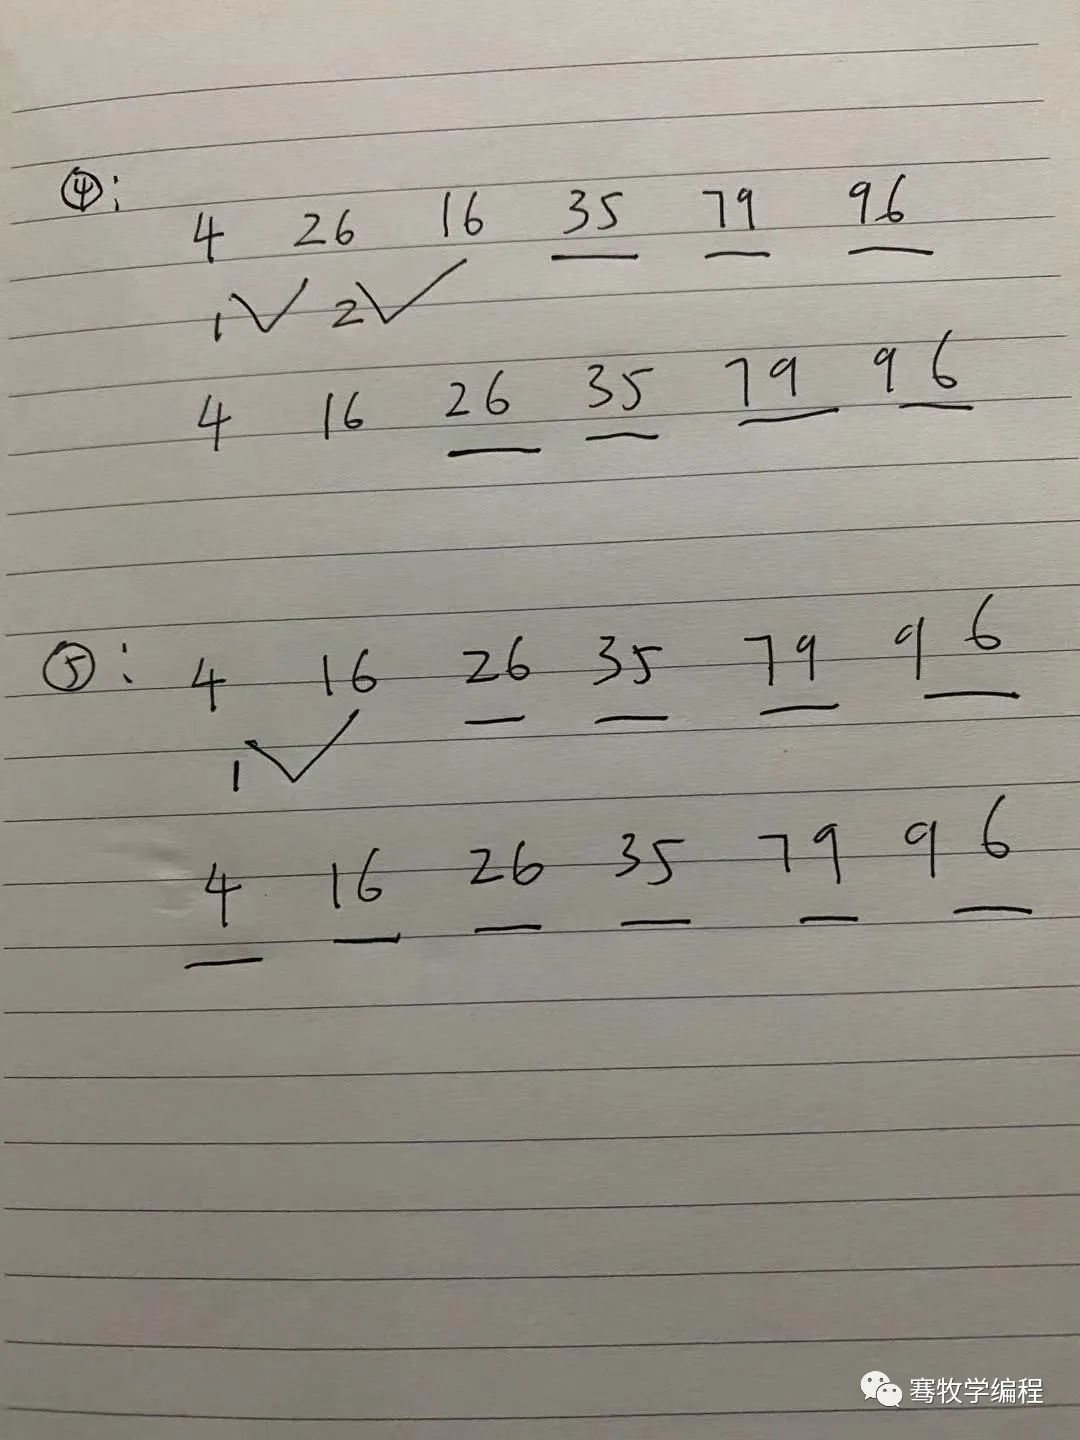 ④:
4 26 16 35 79 96
1 2
4 16 26 35 79 96
⑤: 4 16 26 35 79 96
1
4 16 26 35 79 96
骞牧学编程